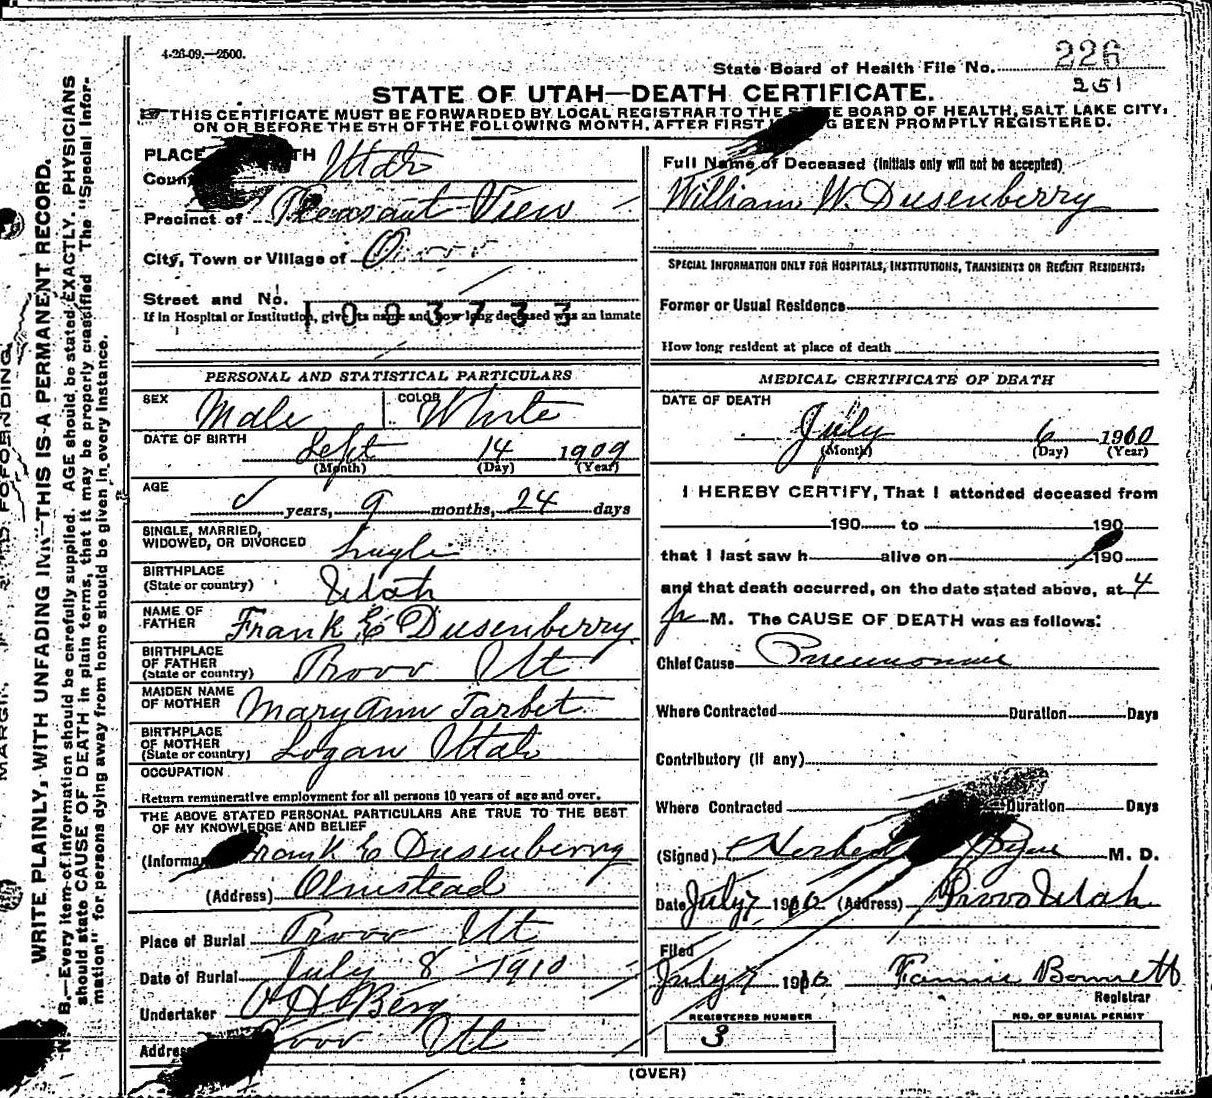 4-26-09.—2500.
State Board of Health File No. 226
251
STATE OF UTAH—DEATH CERTIFICATE.
THIS CERTIFICATE MUST BE FORWARDED BY LOCAL REGISTRAR TO THE BOARD OF HEALTH, SALT LAKE CITY,
ON OR BEFORE THE 5TH OF THE FOLLOWING MONTH, AFTER FIRST BEEN PROMPTLY REGISTERED.
PLACE
Utah
Precinct of Pleasant View
City, Town or Village of Provo
Street and No.
1003733
If in Hospital or Institution, give its name and how long deceased was an inmate
PERSONAL AND STATISTICAL PARTICULARS
SEX Male COLOR White
DATE OF BIRTH
Sept 14 1909
(Month) (Day) (Year)
AGE
years, 9 months, 24 days
SINGLE, MARRIED,
WIDOWED, OR DIVORCED Single
BIRTHPLACE
(State or country) Utah
NAME OF
FATHER Frank E Dusenberry
BIRTHPLACE
OF FATHER
(State or country) Provo Ut
MAIDEN NAME
OF MOTHER Mary Ann Tarbet
BIRTHPLACE
OF MOTHER
(State or country) Logan Utah
OCCUPATION
Return remunerative employment for all persons 10 years of age and over.
THE ABOVE STATED PERSONAL PARTICULARS ARE TRUE TO THE BEST
OF MY KNOWLEDGE AND BELIEF
Frank E Dusenberry
(Address) Olmstead
Place of Burial Provo Ut
Date of Burial July 8 1910
Undertaker O H Berg
Provo Ut
Full Name of Deceased (Initials only will not be accepted)
William W. Dusenberry
SPECIAL INFORMATION ONLY FOR HOSPITALS, INSTITUTIONS, TRANSIENTS OR RECENT RESIDENTS:
Former or Usual Residence
How long resident at place of death
MEDICAL CERTIFICATE OF DEATH
DATE OF DEATH
July 6 1910
(Month) (Day) (Year)
I HEREBY CERTIFY, That I attended deceased from
190 to 190
that I last saw h alive on 190
and that death occurred, on the date stated above, at 4
p M. The CAUSE OF DEATH was as follows:
Chief Cause Pneumonia
Where Contracted Duration Days
Contributory (if any)
Where Contracted Duration Days
(Signed) M. D.
Date July 7 1910 (Address) Provo Utah
Filed
July 7 1910 Fannie Bonnett
Registrar
REGISTERED NUMBER
3
NO. OF BURIAL PERMIT
(OVER)
WRITE PLAINLY, WITH UNFADING INK—THIS IS A PERMANENT RECORD.
N. B.—Every item of information should be carefully supplied. AGE should be stated EXACTLY. PHYSICIANS
should state CAUSE OF DEATH in plain terms, that it may be properly classified The "Special Infor-
mation" for persons dying away from home should be given in every instance.
MARGIN